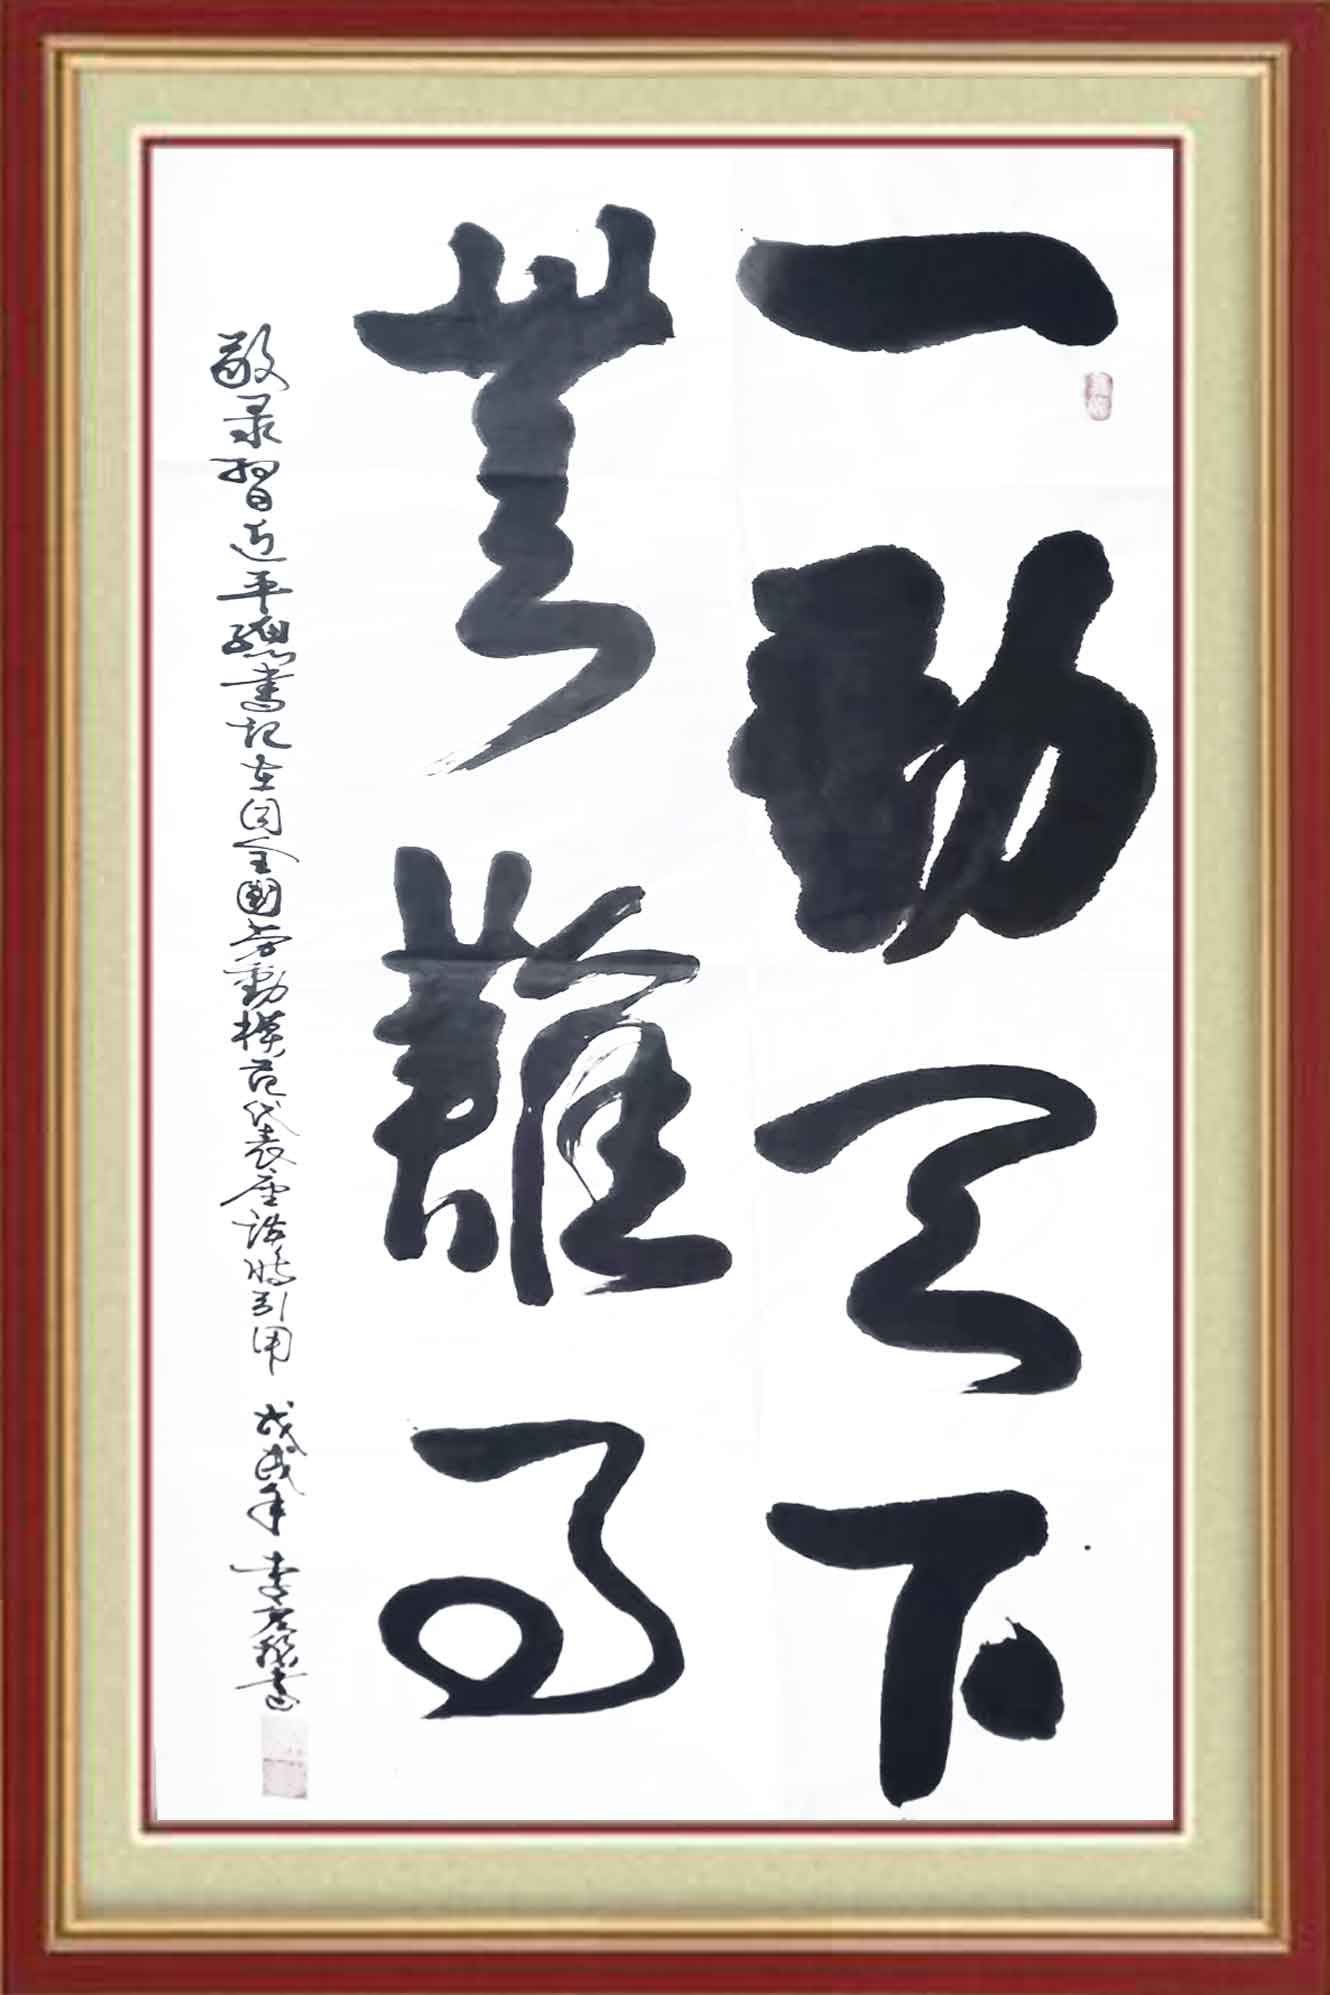 一勤天下
無難事
敬录習近平總書記在同全國劳動模范代表座谈時引用 戊戌年 李
書